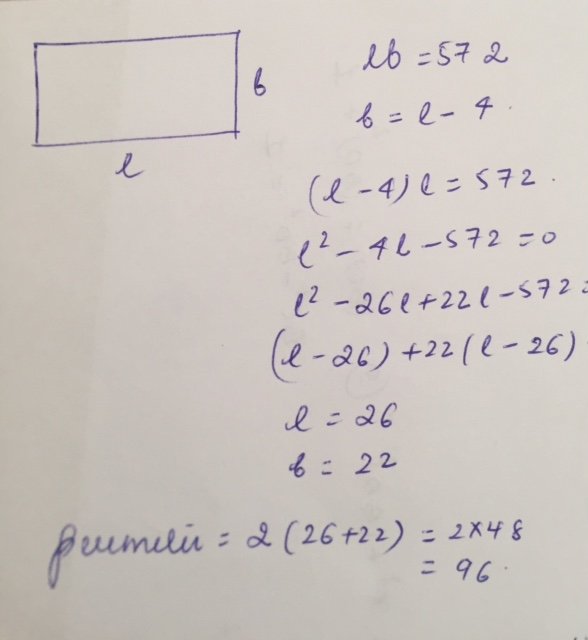 b
l
lb = 572
b = l - 4.
(l - 4) l = 572.
l² - 4l - 572 = 0
l² - 26l + 22l - 572 =
(l - 26) + 22 (l - 26)
l = 26
b = 22
perimeter = 2 (26+22) = 2×48
= 96.